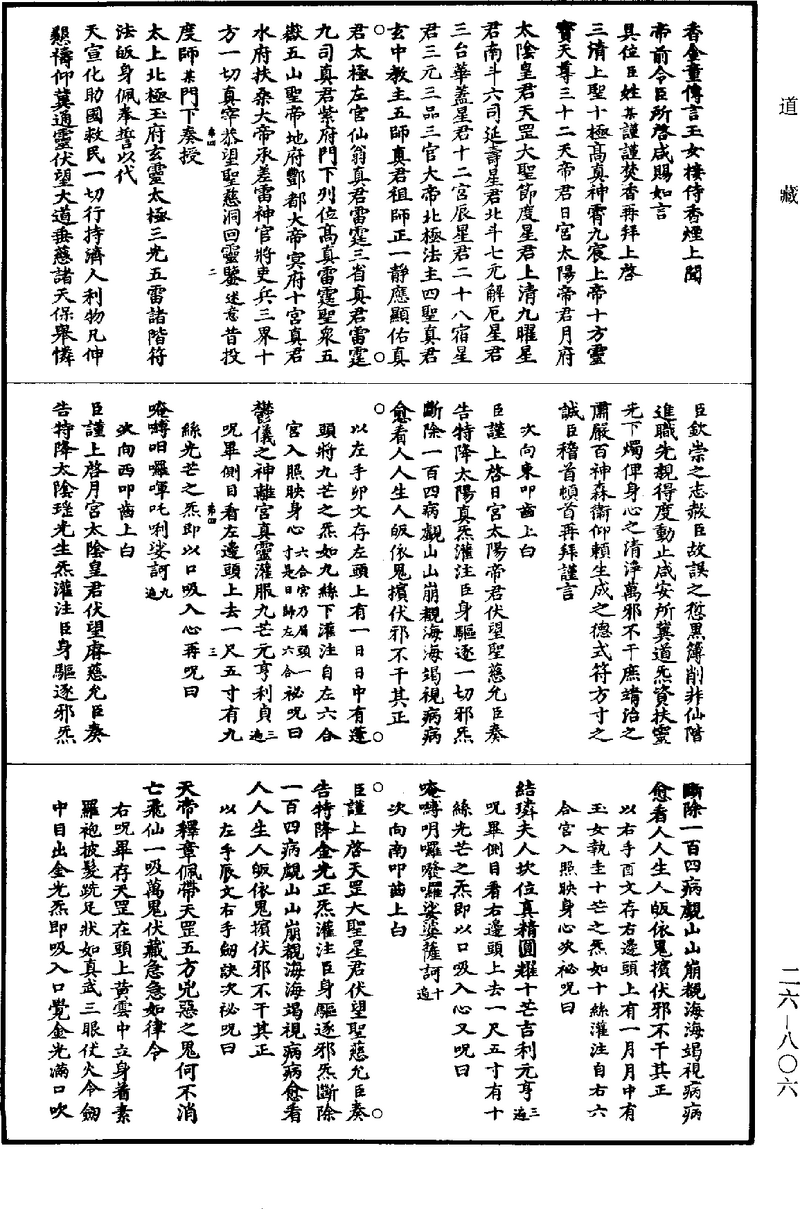 道藏
香金童傳言玉女接侍香煙上聞
帝前令臣所啓咸賜如言
具位臣姓某謹謹焚香再拜上啓
三清上聖十極高真神霄九宸上帝十方靈
寶天尊三十二天帝君日宮太陽帝君月府
太陰皇君天罡大聖節度星君上清九曜星
君南斗六司延壽星君北斗七元解厄星君
三台華蓋星君十二宮辰星君二十八宿星
君三元三品三官大帝北極法主四聖真君
玄中教主五師真君祖師正一靜應顯佑真
君太極左宮仙翁真君雷霆三省真君雷霆
九司真君紫府門下列位高真雷霆聖衆五
嶽五山聖帝地府酆都大帝冥府十宮真君
水府扶桑大帝承差雷神官將吏兵三界十
方一切真宰恭望聖慈洞回靈鑒述意昔投
第四 二
度師某門下奏授
太上北極玉府玄靈太極三光五雷諸階符
法皈身佩奉誓以代
天宣化助國救民一切行持濟人利物凡伸
懇禱仰冀通靈伏望大道垂慈諸天保舉憐
臣欽崇之志赦臣故誤之愆黑簿削非仙階
進職光覲得度動止咸安所冀道炁資扶靈
光下燭俾身心之清淨萬邪不干庶靖治之
肅嚴百神森衛仰賴生成之德式符方寸之
誠臣稽首頓首再拜謹言
次向東叩齒上白
臣謹上啓日宮太陽帝君伏望聖慈允臣奏
告特降太陽真炁灌注臣身驅逐一切邪炁
斷除一百四病覷山山崩覩海海竭視病病
愈看人人生人皈依鬼擯伏邪不干其正
以左手卯文存左頭上有一日日中有蓬
頭將九芒之炁如九絲下灌注自左六合
宮入照映身心六合宮乃眉頭一寸是日師左六合祕呪曰
鬱儀之神離宮真靈灌服九芒元亨利貞三遍
呪畢側目看左邊頭上去一尺五寸有九
第四 三
絲光芒之炁即以口吸入心再呪曰
唵嚩呬囉㖇吒唎娑訶九遍
次向西叩齒上白
臣謹上啓月宮太陰皇君伏望睿慈允臣奏
告特降太陰瑤光生炁灌注臣身驅逐邪炁
斷除一百四病覷山山崩覩海海竭視病病
愈看人人生人皈依鬼擯伏邪不干其正
以右手酉文存右邊頭上有一月月中有
玉女執圭十芒之炁如十絲灌注自右六
合宮入照映身心次祕呪曰
結璘夫人坎位真精圓耀十芒吉利元亨三遍
呪畢側目看右邊頭上去一尺五寸有十
絲光芒之炁即以口吸入心又呪曰
唵嚩明囉囉娑婆薩訶十遍
次向南叩齒上白
臣謹上啓天罡大聖星君伏望聖慈允臣奏
告特降金光正炁灌注臣身驅逐邪炁斷除
一百四病覷山山崩覩海海竭視病病愈看
人人生人皈依鬼擯伏邪不干其正
以左手辰文右手劒訣次祕呪曰
天帝釋章佩帶天罡五方兇惡之鬼何不消
亡飛仙一吸萬鬼伏藏急急如律令
右呪畢存天罡在頭上黄雲中立身著素
羅袍披髮跣足狀如真武三眼仗火令劒
中目出金光炁即吸入口覺金光滿口吹
二六－八〇六